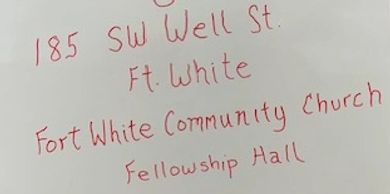 185 SW Well St.
Ft. White
Fort White Community Church
Fellowship Hall